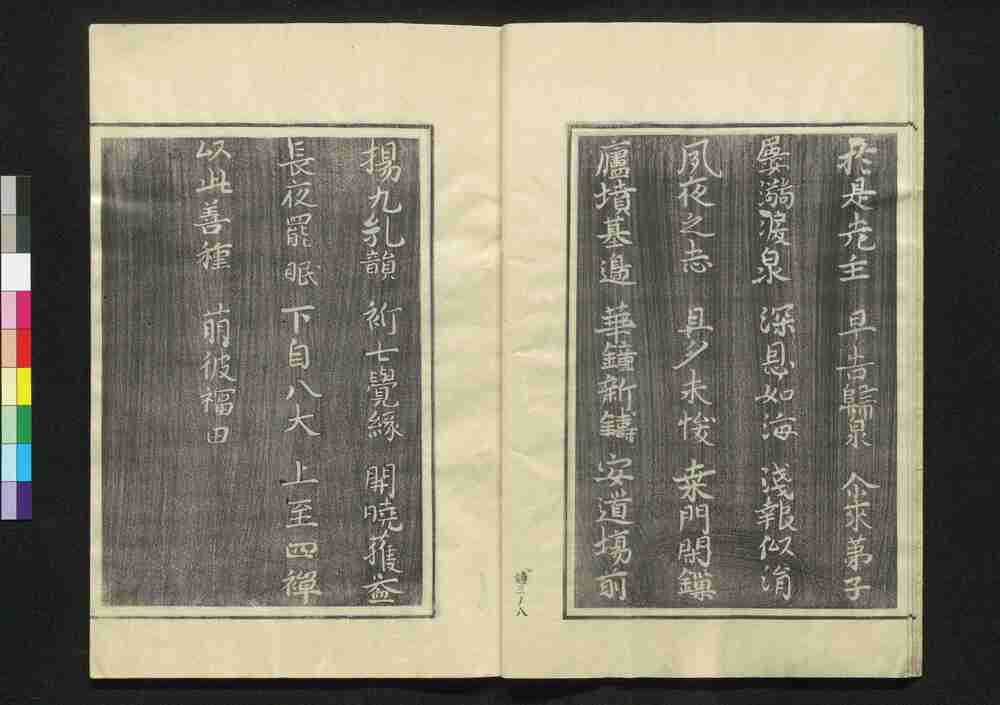 於是先主　早告歸泉　尒来弟子
屡淚泉　深恩如海　淺報似涓
夙夜之志　具夕未悛　桒門閑鎮
廬墳基邊　華鐘新鑄　安道場前
揚九乳韻　衍七覺緣　開曉獲益
長夜罷眠　下自八大　上至四禪
以此善種　萌彼福田
三ノ八